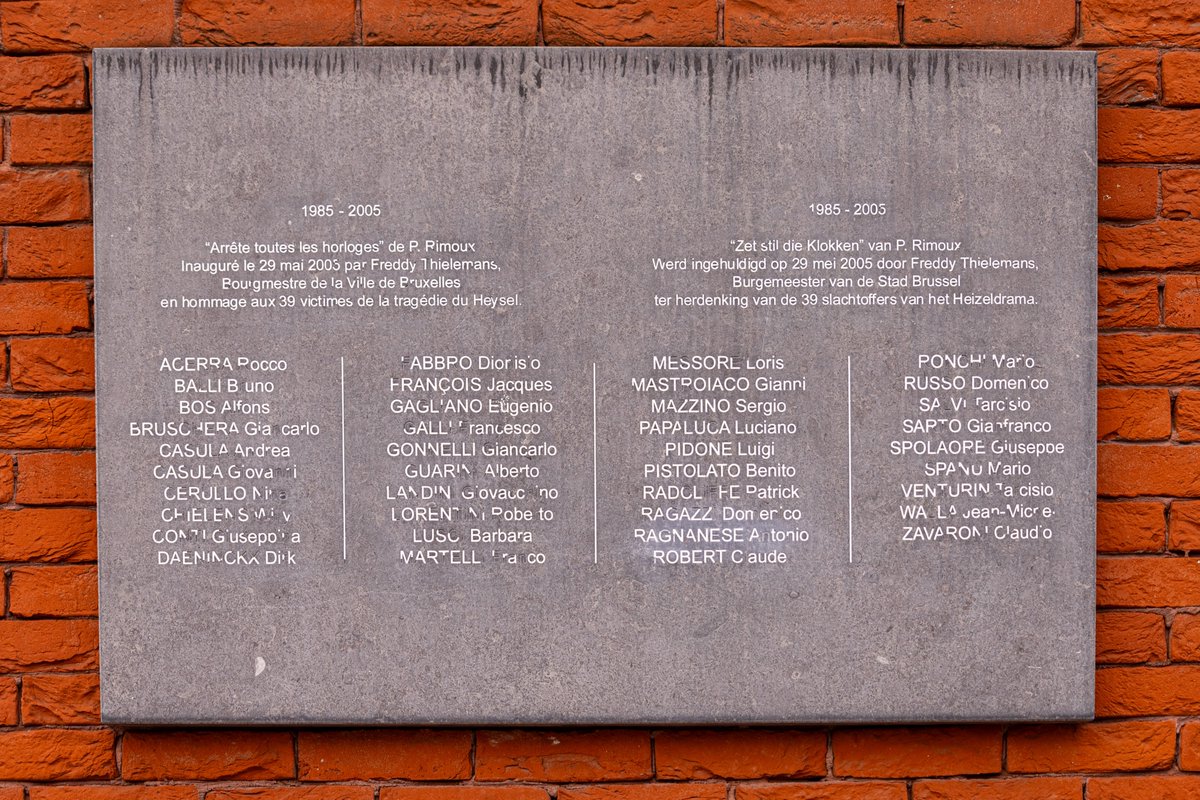 1985 - 2005
"Arrête toutes les horloges" de P. Rimoux
Inauguré le 29 mai 2005 par Freddy Thielemans,
Bourgmestre de la Ville de Bruxelles
en hommage aux 39 victimes de la tragédie du Heysel.
1985 - 2005
"Zet stil die Klokken" van P. Rimoux
Werd ingehuldigd op 29 mei 2005 door Freddy Thielemans,
Burgemeester van de Stad Brussel
ter herdenking van de 39 slachtoffers van het Heizeldrama.
ACERRA Rocco
BALLI Bruno
BOS Alfons
BRUSCHERA Giancarlo
CASULA Andrea
CASULA Giovanni
CERULLO Nino
CHIELENS Willy
CONTI Giuseppina
DAENINCKX Dirk
FABBRO Dionisio
FRANÇOIS Jacques
GAGLIANO Eugenio
GALLI Francesco
GONNELLI Giancarlo
GUARINI Alberto
LANDINI Giovacchino
LORENTINI Roberto
LUSCI Barbara
MARTELLI Franco
MESSORE Loris
MASTROIACO Gianni
MAZZINO Sergio
PAPALUCA Luciano
PIDONE Luigi
PISTOLATO Benito
RADCLIFFE Patrick
RAGAZZI Domenico
RAGNANESE Antonio
ROBERT Claude
RONCHI Mario
RUSSO Domenico
SALVI Tarcisio
SARTO Gianfranco
SPOLAORE Giuseppe
SPANU Mario
VENTURIN Tarcisio
WALLA Jean-Michel
ZAVARONI Claudio